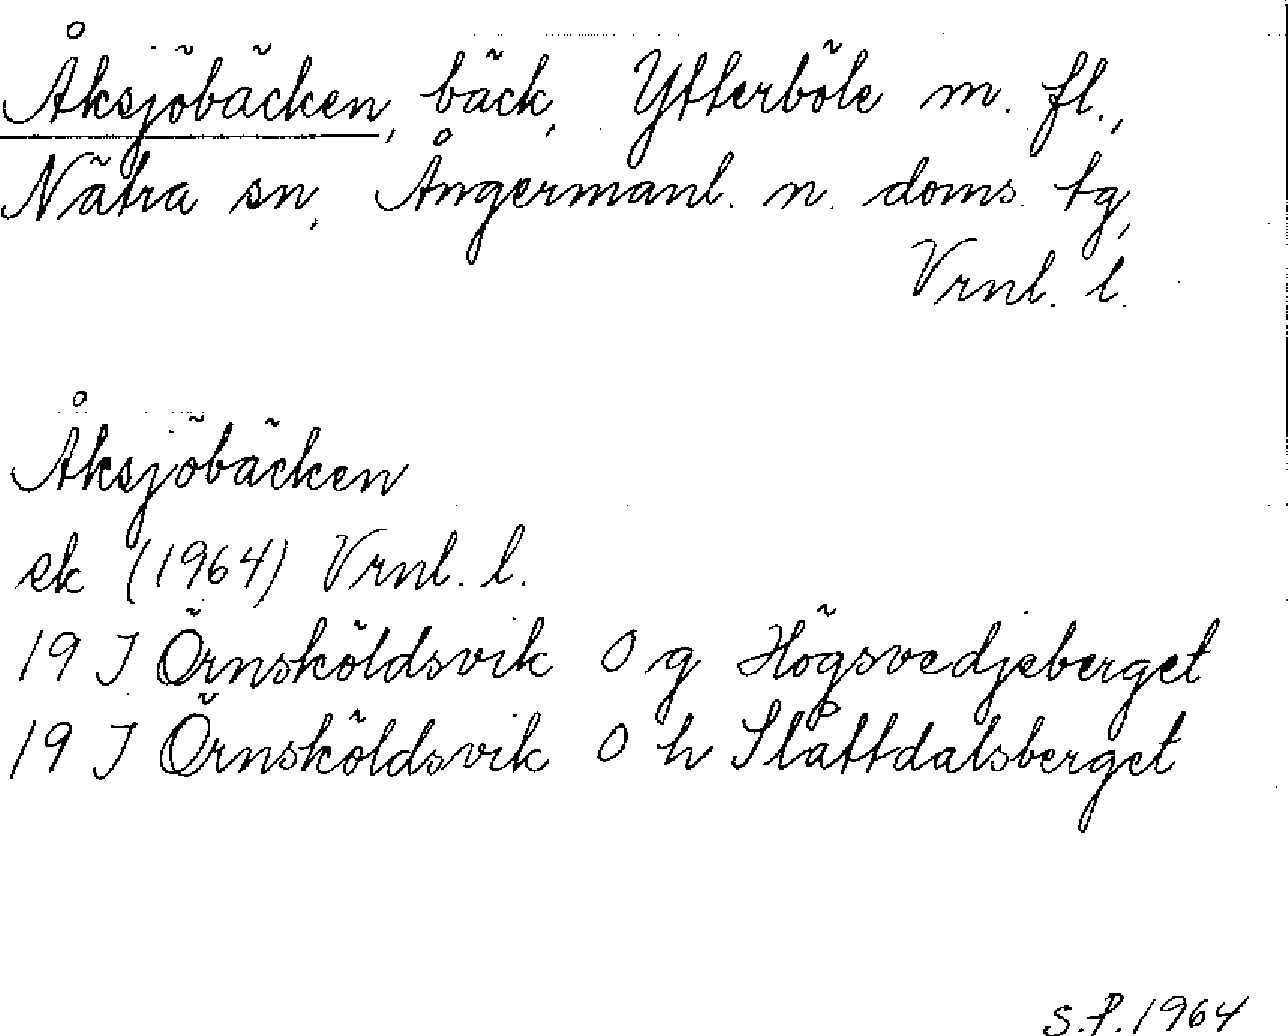 Åksjöbäcken, bäck, Ytterböle m. fl.,
Nätra sn, Ångermanl. n. doms. tg,
Vrnl. l.
Åksjöbäcken
ek (1964) Vrnl. l.
19 J Örnsköldsvik O g Högsvedjeberget
19 J Örnsköldsvik O h Slåttdalsberget
S.P. 1964